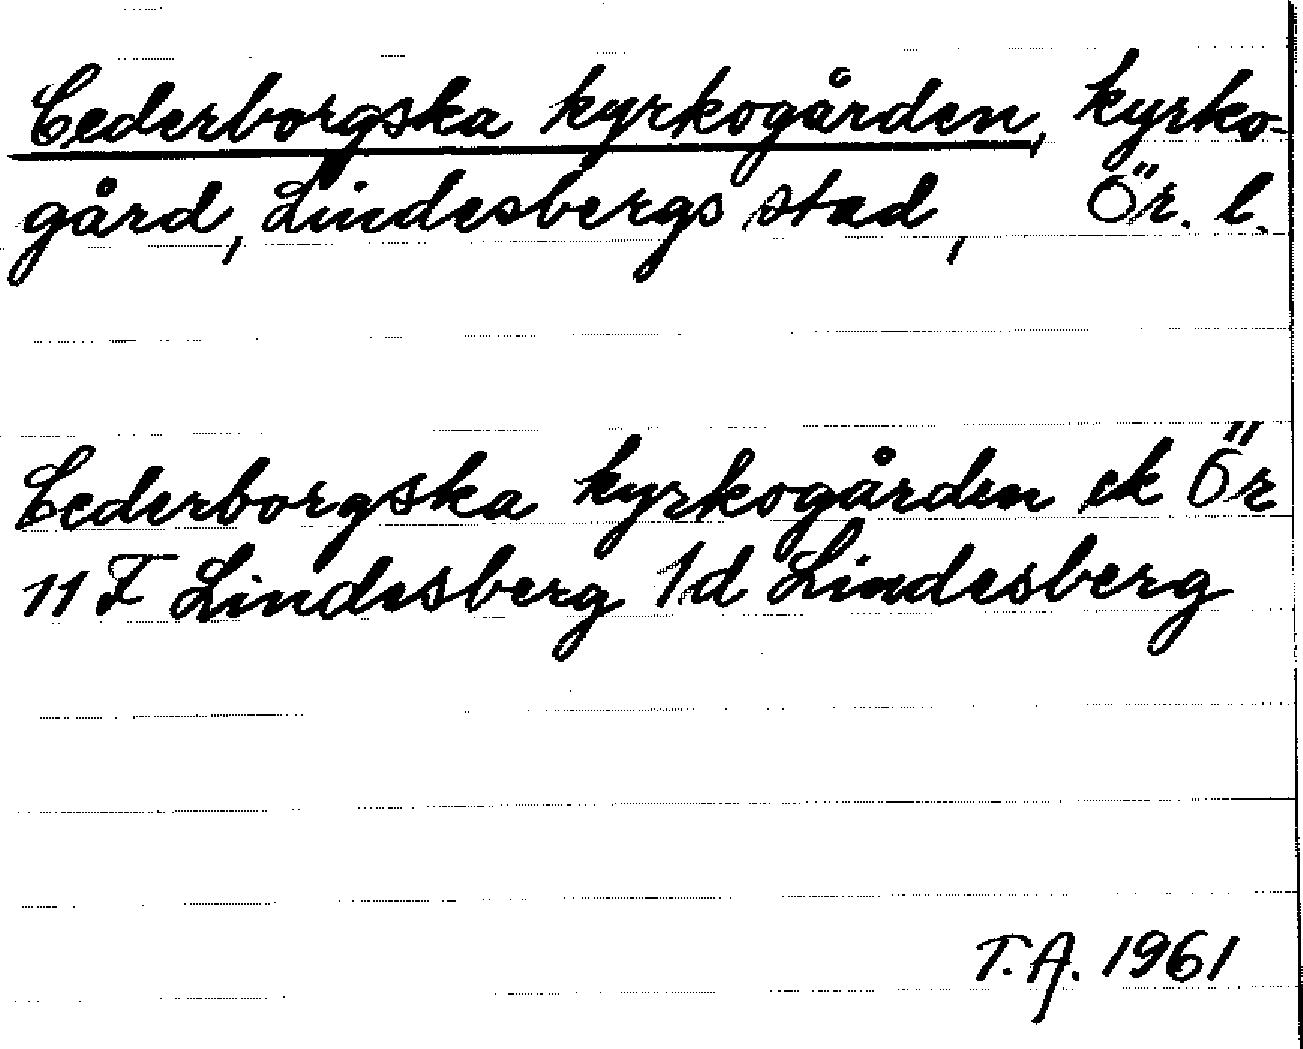 Cederborgska kyrkogården, kyrko-
gård, Lindesbergs stad, Ör. l.
Cederborgska kyrkogården ek Ör
11 F Lindesberg 1d Lindesberg
T.A. 1961